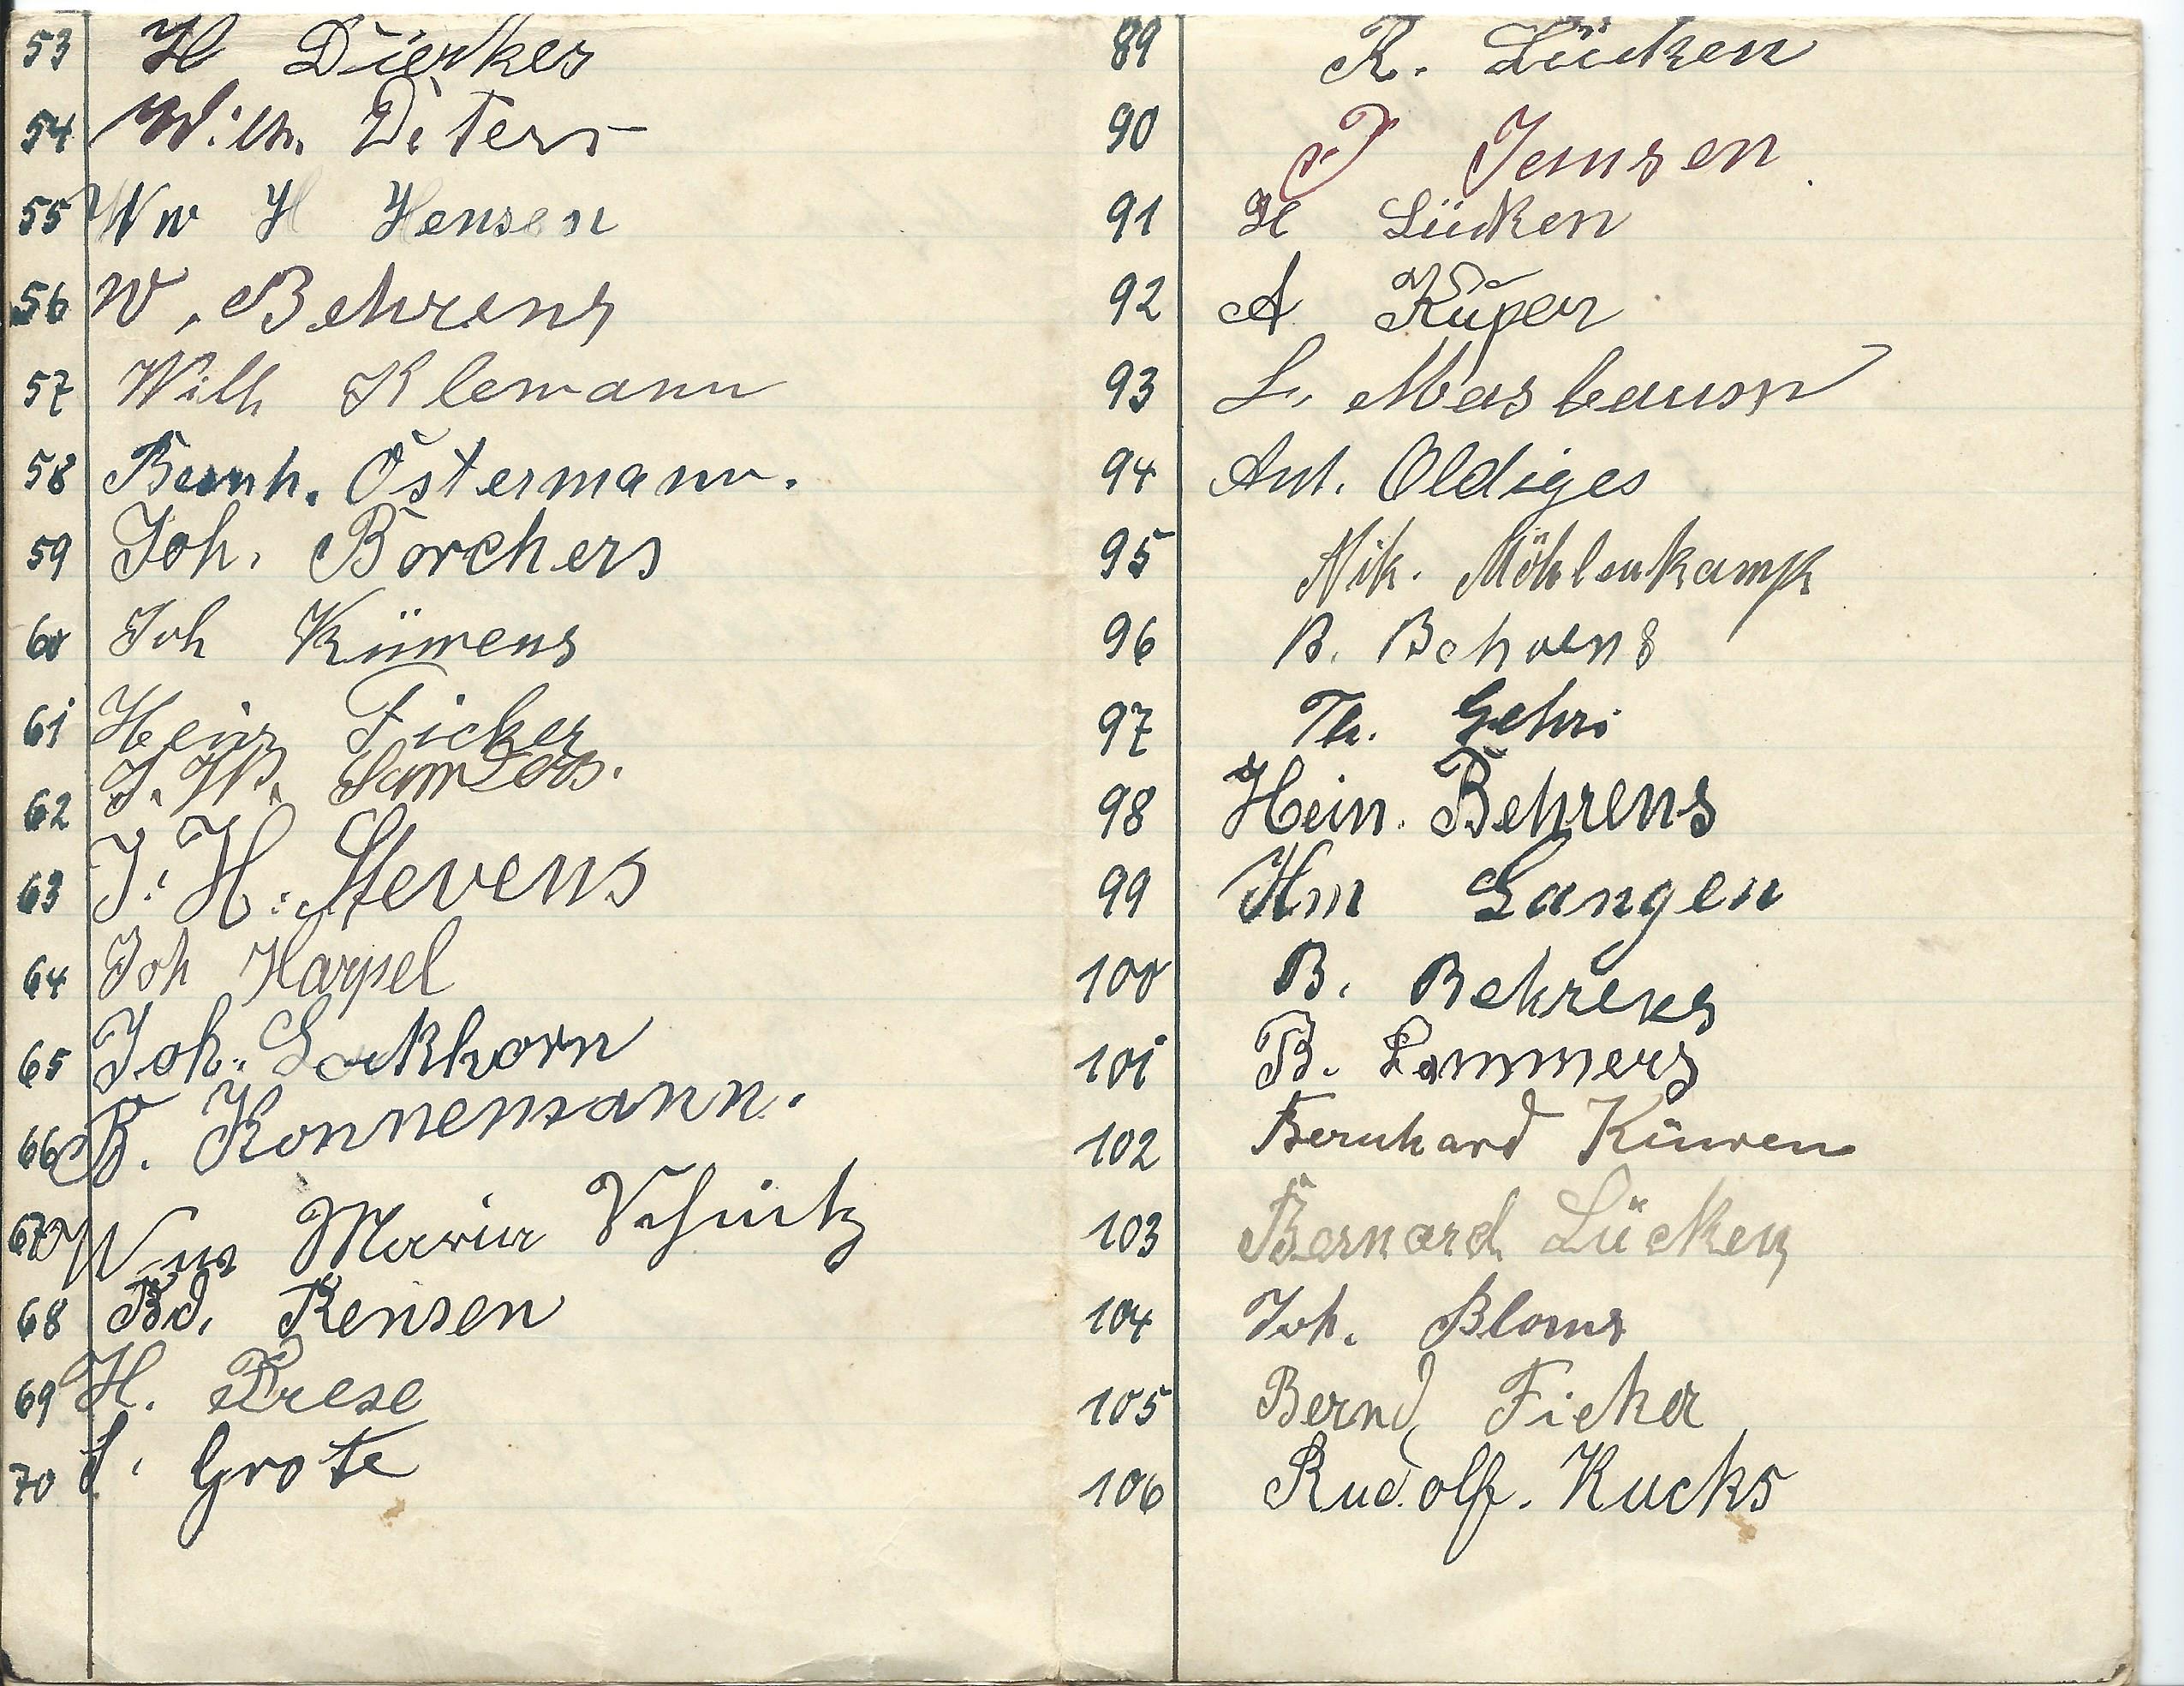 53 H Dierkes
54 Wilh. Diters
55 Ww H Hensen
56 W. Behrens
57 Wilh Klemann
58 Bernh. Ostermann.
59 Joh. Borchers
60 Joh Küwens
61 Heinr Ficker
62 J. W. Sanders.
63 J. H. Stevens
64 Joh Harpel
65 Joh. Lockhorn
66 B. Konnemann.
67 Ww Maria Schütz
68 Bd. Rensen
69 H. Prese
70 Grote
89 R. Lücken
90 Jansen
91 H Lücken
92 A Küper
93 L. Masbaum
94 Ant. Oldiges
95 Nik. Möhlenkamp
96 B. Behrens
97 Th. Gehrs
98 Hein. Behrens
99 Hm Langen
100 B. Behrens
101 B. Lammers
102 Bernhard Küwen
103 Bernard Lücken
104 Joh. Bloms
105 Bernd Ficker
106 Rudolf. Kucks